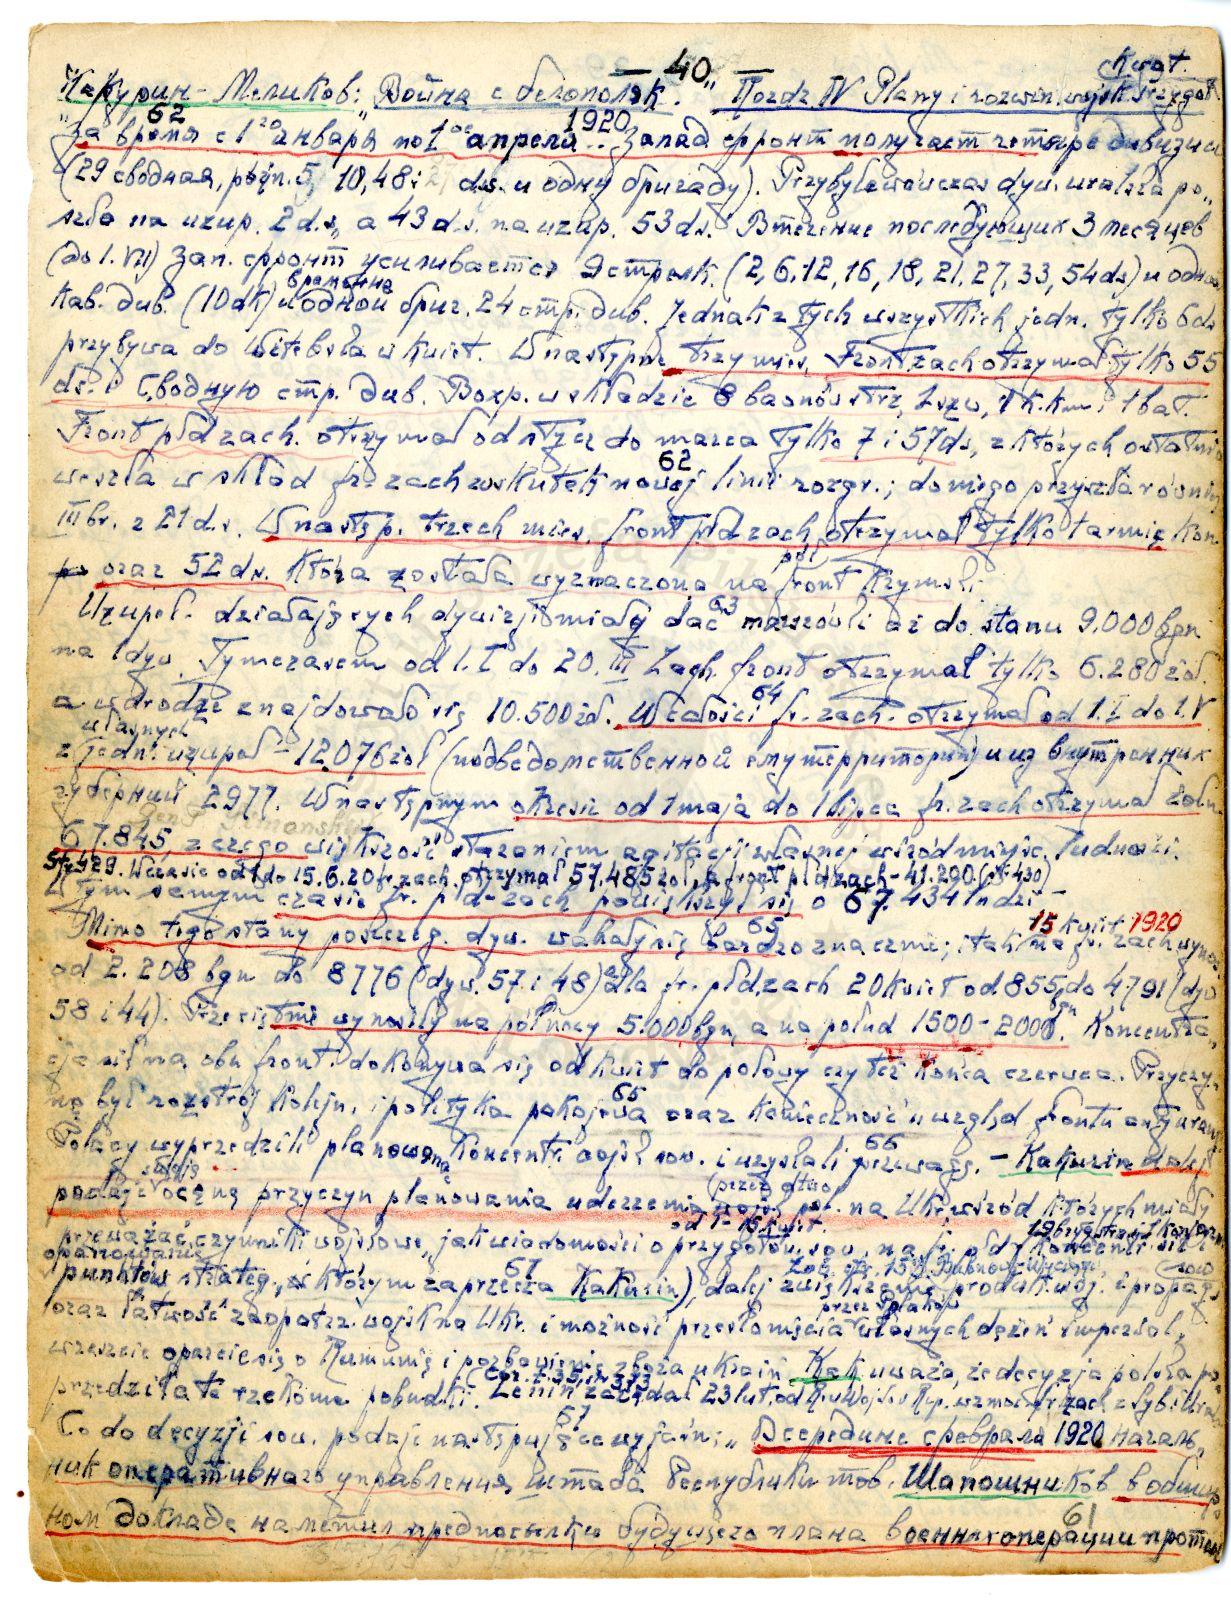 — 40 — Kwgt.
Какурин-Меликов: "Война с белополяк." Rozdz IV Plany i rozwin. wojsk
62 1920
"За время с 1го января по 1ое апреля.. Запад фронт получает четыре дивизии
(29 сводная, 10, 48 i ds. и одну бригаду). Przybyła wówczas dyw. uralska po-
szła na uzup. 2 ds., a 43 ds. na uzup. 53 ds. В течение последующих 3 месяцев
(до 1. VII) Зап. фронт усиливается 9 стрелк. (2, 6, 12, 16, 18, 21, 27, 33, 54 ds) и одной
временно
кав. див. (10 dk) и одной бриг. 24 стр. див. Jednak z tych wszystkich jedn. tylko 6 ds
przybywa do Witebska w kwiet. W następne trzy mies. Front zach otrzymał tylko 55
ds. i Сводную стр. див. Вохр. w składzie 8 baonów strz, 1 szw, 1 k.km i 1 bat.
Front płd zach. otrzymał od stycz do marca tylko 7 i 57 ds, z których ostatnia
62
weszła w skład fr. zach wskutek nowej linii rozgr.; do niego przyszła również
III br. z 21 ds. W następ. trzech mies. front płd zach otrzymał tylko 1 armię kon
płd
oraz 52 ds. która została wyznaczona na front Krymski.
63
Uzupeł. działających dywizji miały dać marszówki aż do stanu 9.000 bgn
na 1 dyw. Tymczasem od 1. I do 20. III Zach. front otrzymał tylko 6.280 żoł.
64
a w drodze znajdowało się 10.500 żoł. W całości fr. zach. otrzymał od 1. I do 1. V
własnych
z jedn. uzupeł - 12.076 żoł (подведомственной ему территории) и из внутренних
губерний 2977. W następnym okresie od 1 maja do 1 lipca fr. zach otrzymał żołn
67.845, z czego większość staraniem agitacji własnej wśród miejsc. ludności.
Str 429. W czasie od 1 do 15.6.20 fr. zach. otrzymał 57.485 żoł, a front płd zach - 41.290 (str 430)
W tym samym czasie fr. płd-zach powiększył się o 67.434 ludzi
65 15 kwiet 1920
Mimo tego stany poszczeg. dyw. wahały się bardzo znacznie; i tak na fr. zach wynos
od 2.208 bgn do 8776 (dyw. 57 i 48) dla fr. płd zach 20 kwiet od 855 do 4791 (dyw
58 i 44). Przeciętnie wynosiły na północy 5.000 bgn, a na połud 1500-2000 bgn. Koncentra-
cja sił na obu front. dokonywa się od kwiet do połowy czy też końca czerwca. Przyczy-
65
ną był rozstrój kolejn. i polityka pokojowa oraz konieczność uwzględ frontu antywrang.
66
Polacy wyprzedzili planowaną koncentr wojsk sow. i uzyskali przewagę. - Kakurin dalej
swoją (przez dtwo)
podaje ocenę przyczyn planowania uderzenia wojsk pol. na Ukr. wśród których miały
od 1-15 kwiet. 19 bryg strz i 1 kaw
przeważać czynniki wojskowe, jak wiadomości o przygotow. sow. na fr. płd
opanowanie
67
punktów strateg., (w którym zaprzecza Kakurin), dalej zwiększenie produkt. woj. i propag
przez Polaków
oraz łatwość zaopatrz. wojsk na Ukr. i możność przesłonięcia własnych dążeń imperial,
wreszcie oparcie się o Rumunię i pozbawienie zboża ukraiń. Kak uważa, że decyzja polska po-
przedziła te rzekome pobudki. Lenin zażądał 23 lut. od R. Woj. Rep. wzmoc. fr. zach z Syb. i Ural
67
Co do decyzji sow. podaje następujące wyjaśn; "В середине февраля 1920 началь-
ник оперативного управления штаба Республики тов. Шапошников в обшир-
61
ном докладе наметил предпосылки будущего плана военных операции против